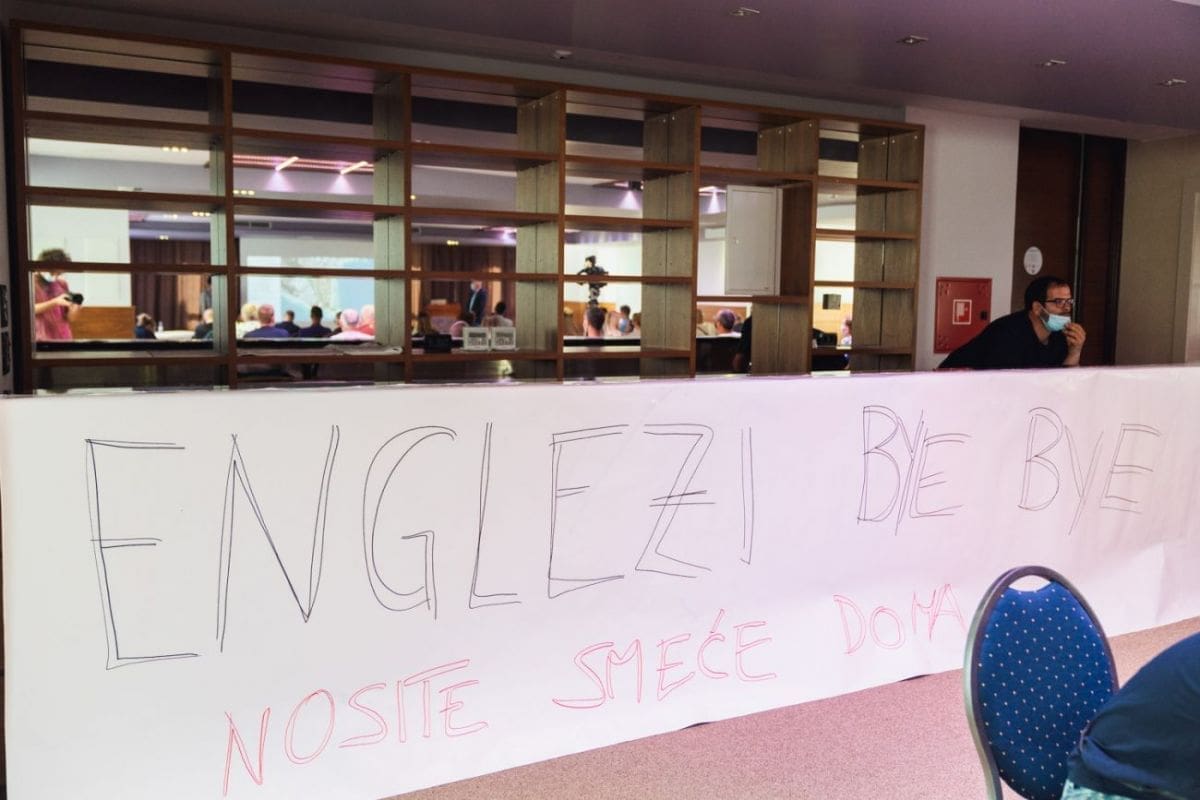 ENGLEZI BYE BYE
NOSITE SMEĆE DOMA